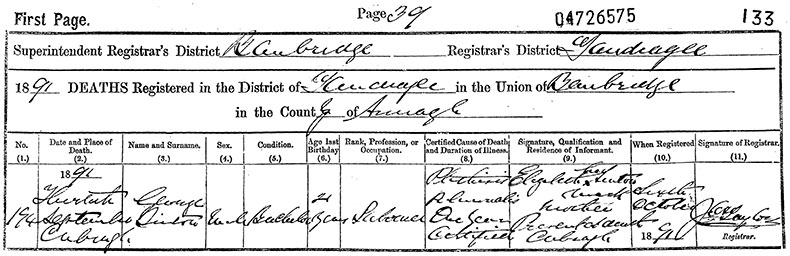 First Page.
Page 39
04726575
133
Superintendent Registrar's District Banbridge Registrar's District Tandragee
1891 DEATHS Registered in the District of Tandragee in the Union of Banbridge
in the County of Armagh
No.
(1.)
Date and Place of Death.
(2.)
Name and Surname.
(3.)
Sex.
(4.)
Condition.
(5.)
Age last Birthday
(6.)
Rank, Profession, or Occupation.
(7.)
Certified Cause of Death and Duration of Illness.
(8.)
Signature, Qualification and Residence of Informant.
(9.)
When Registered
(10.)
Signature of Registrar.
(11.)
194
1891
September
George
Male
Bachelor
Years
Labourer
Phthisis
Pulmonalis
One Year
Certified
Elizabeth
her
x
mark
mother
Present at death
Sixth
October
1891
Taylor
Registrar.